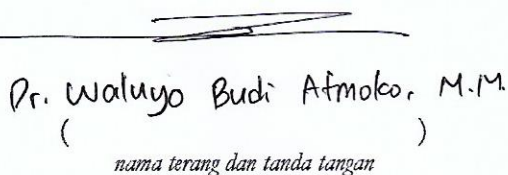 Dr. Waluyo Budi Atmoko, M.M.
( )
nama terang dan tanda tangan